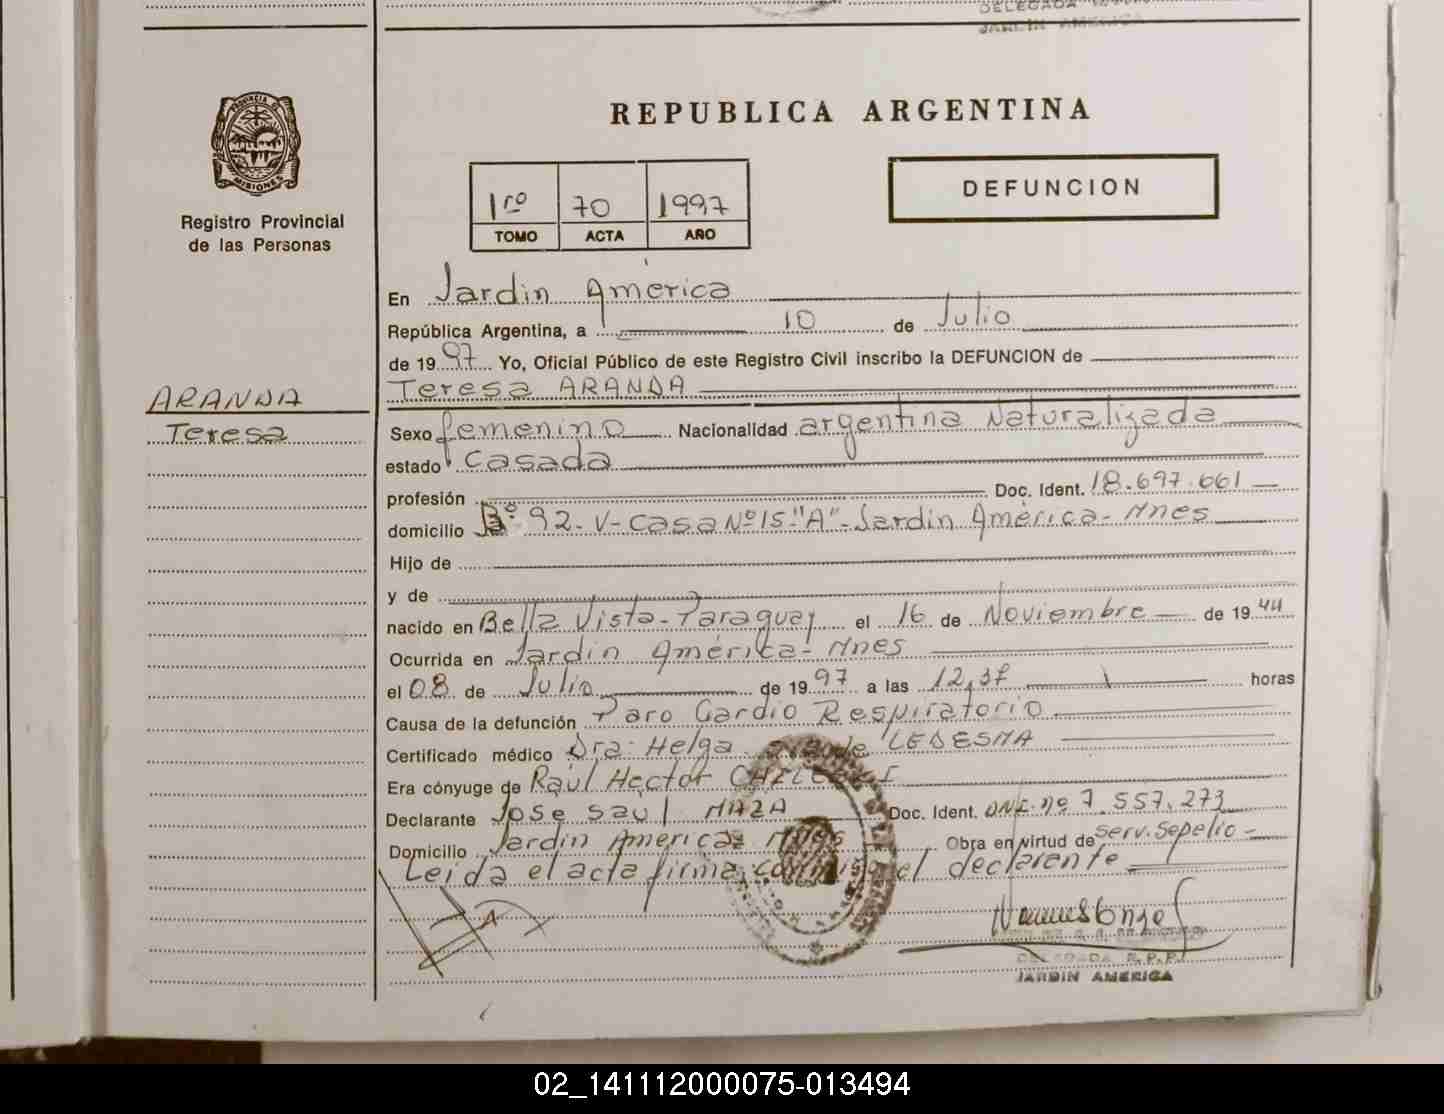 DELEGADA
JARDIN AMERICA
PROVINCIA DE
MISIONES
Registro Provincial
de las Personas
REPUBLICA ARGENTINA
1ro 70 1997
TOMO ACTA AÑO
DEFUNCION
En Jardin América
República Argentina, a 10 de Julio
de 1997 Yo, Oficial Público de este Registro Civil inscribo la DEFUNCION de
Teresa ARANDA
ARANDA
Teresa
Sexo femenino Nacionalidad argentina Naturalizada
estado casada
profesión Doc. Ident. 18.697.661
domicilio Bº 92-V-Casa Nº15-"A"-Jardin América-Mnes
Hijo de
y de
nacido en Bella Vista-Paraguay el 16 de Noviembre de 1944
Ocurrida en Jardin América-Mnes
el 08 de Julio de 1997 a las horas
Causa de la defunción Paro Cardio Respiratorio
Certificado médico Dra. Helga de LEDESMA
Era cónyuge de Raúl Hector
Declarante José Saúl MAZA Doc. Ident. DNI. nº 7.557.273
Domicilio Jardin America Mnes Obra en virtud de Serv. Sepelio-
Leida el acta firma conmigo el declarante
DELEGADA R.P.P.
JARDIN AMERICA
02_141112000075-013494